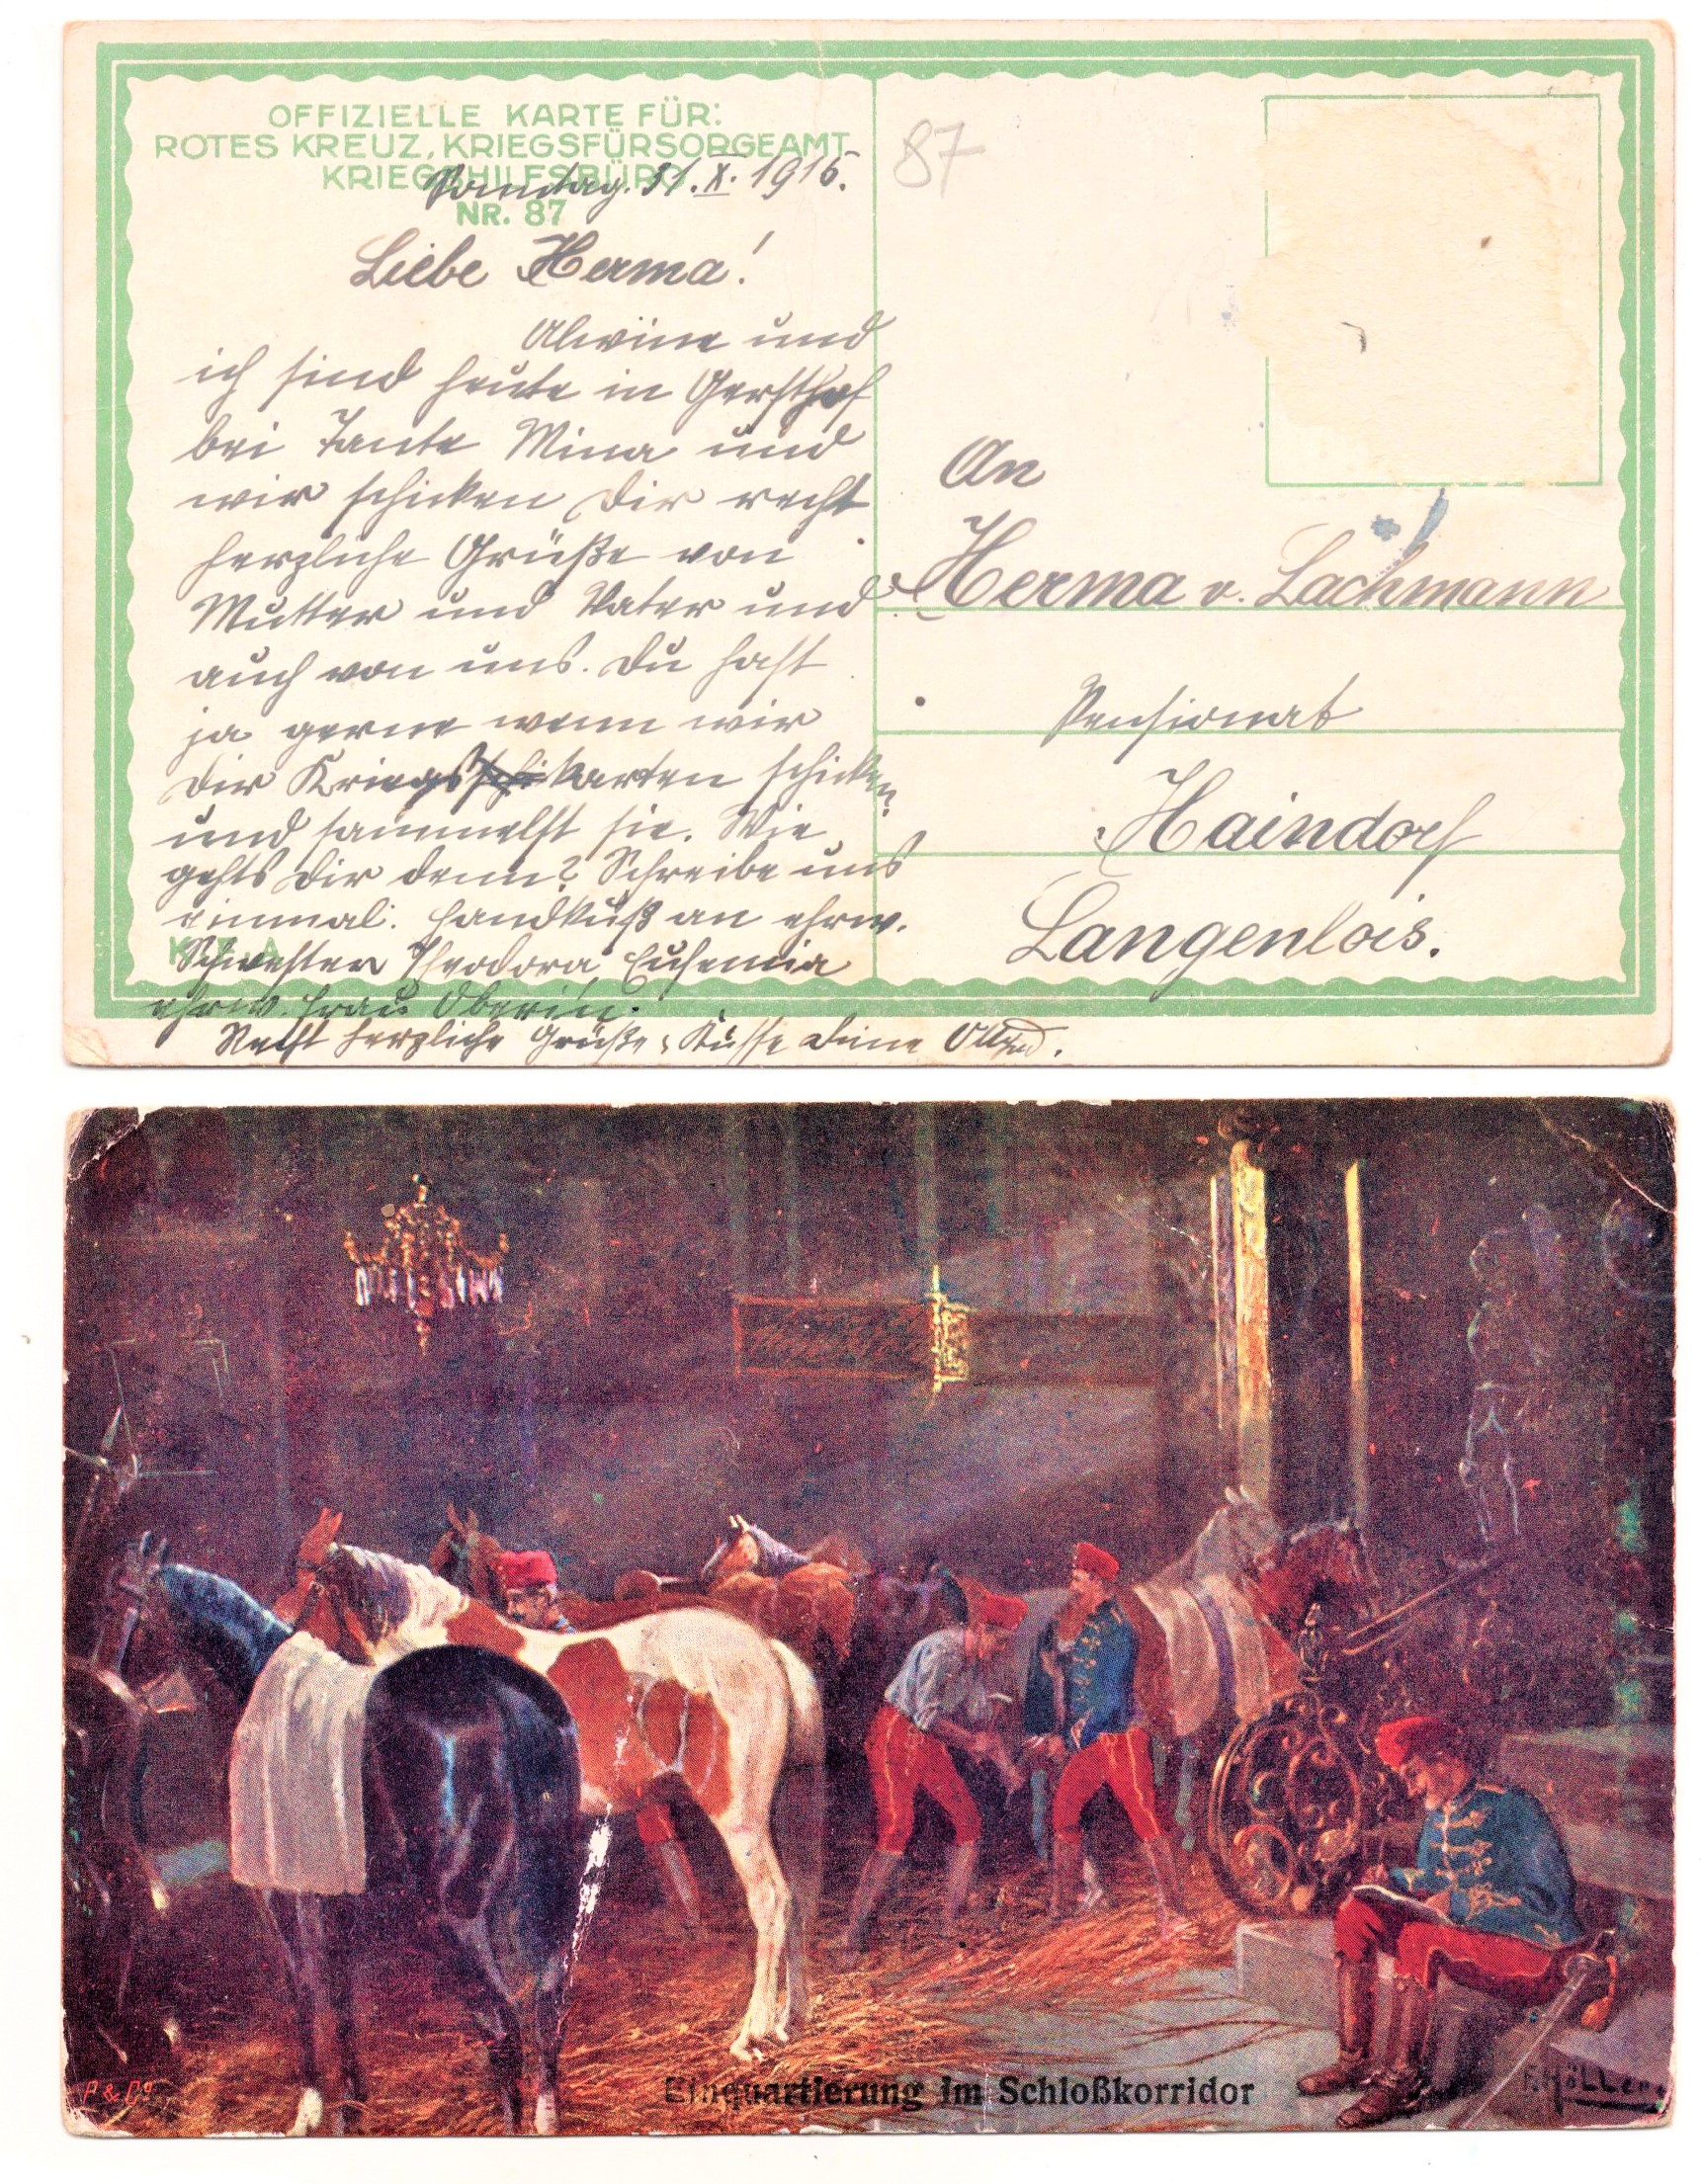 OFFIZIELLE KARTE FÜR:
ROTES KREUZ, KRIEGSFÜRSORGEAMT
KRIEGSHILFSBÜRO
NR. 87
Sonntag. 31. X. 1915.
Liebe Herma!
Alwine und
ich sind heute in Gersthof
bei Tante Mina und
wir schicken Dir recht
herzliche Grüße von
Mutter und Vater und
auch von uns. Du hast
ja gerne wenn wir
Dir Kriegskarten schicken
und sammelst sie. Wie
gehts Dir denn? Schreibe uns
einmal. Handkuß an ehrw.
Schwester Theodora Eufemia
ehrw. Frau Oberin.
Recht herzliche Grüße, Küsse Deine
K.F.A.
87
An
Herma v. Lachmann
Pensionat
Haindorf
Langenlois.
Einquartierung im Schloßkorridor
P & Co